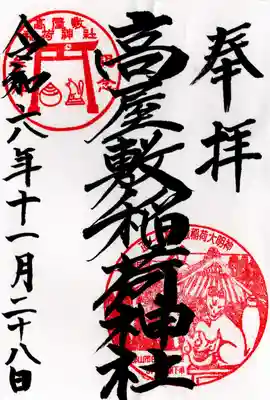 奉拝
高屋敷稲荷神社
令和六年十一月二十八日
高屋敷
稲荷神社
記念